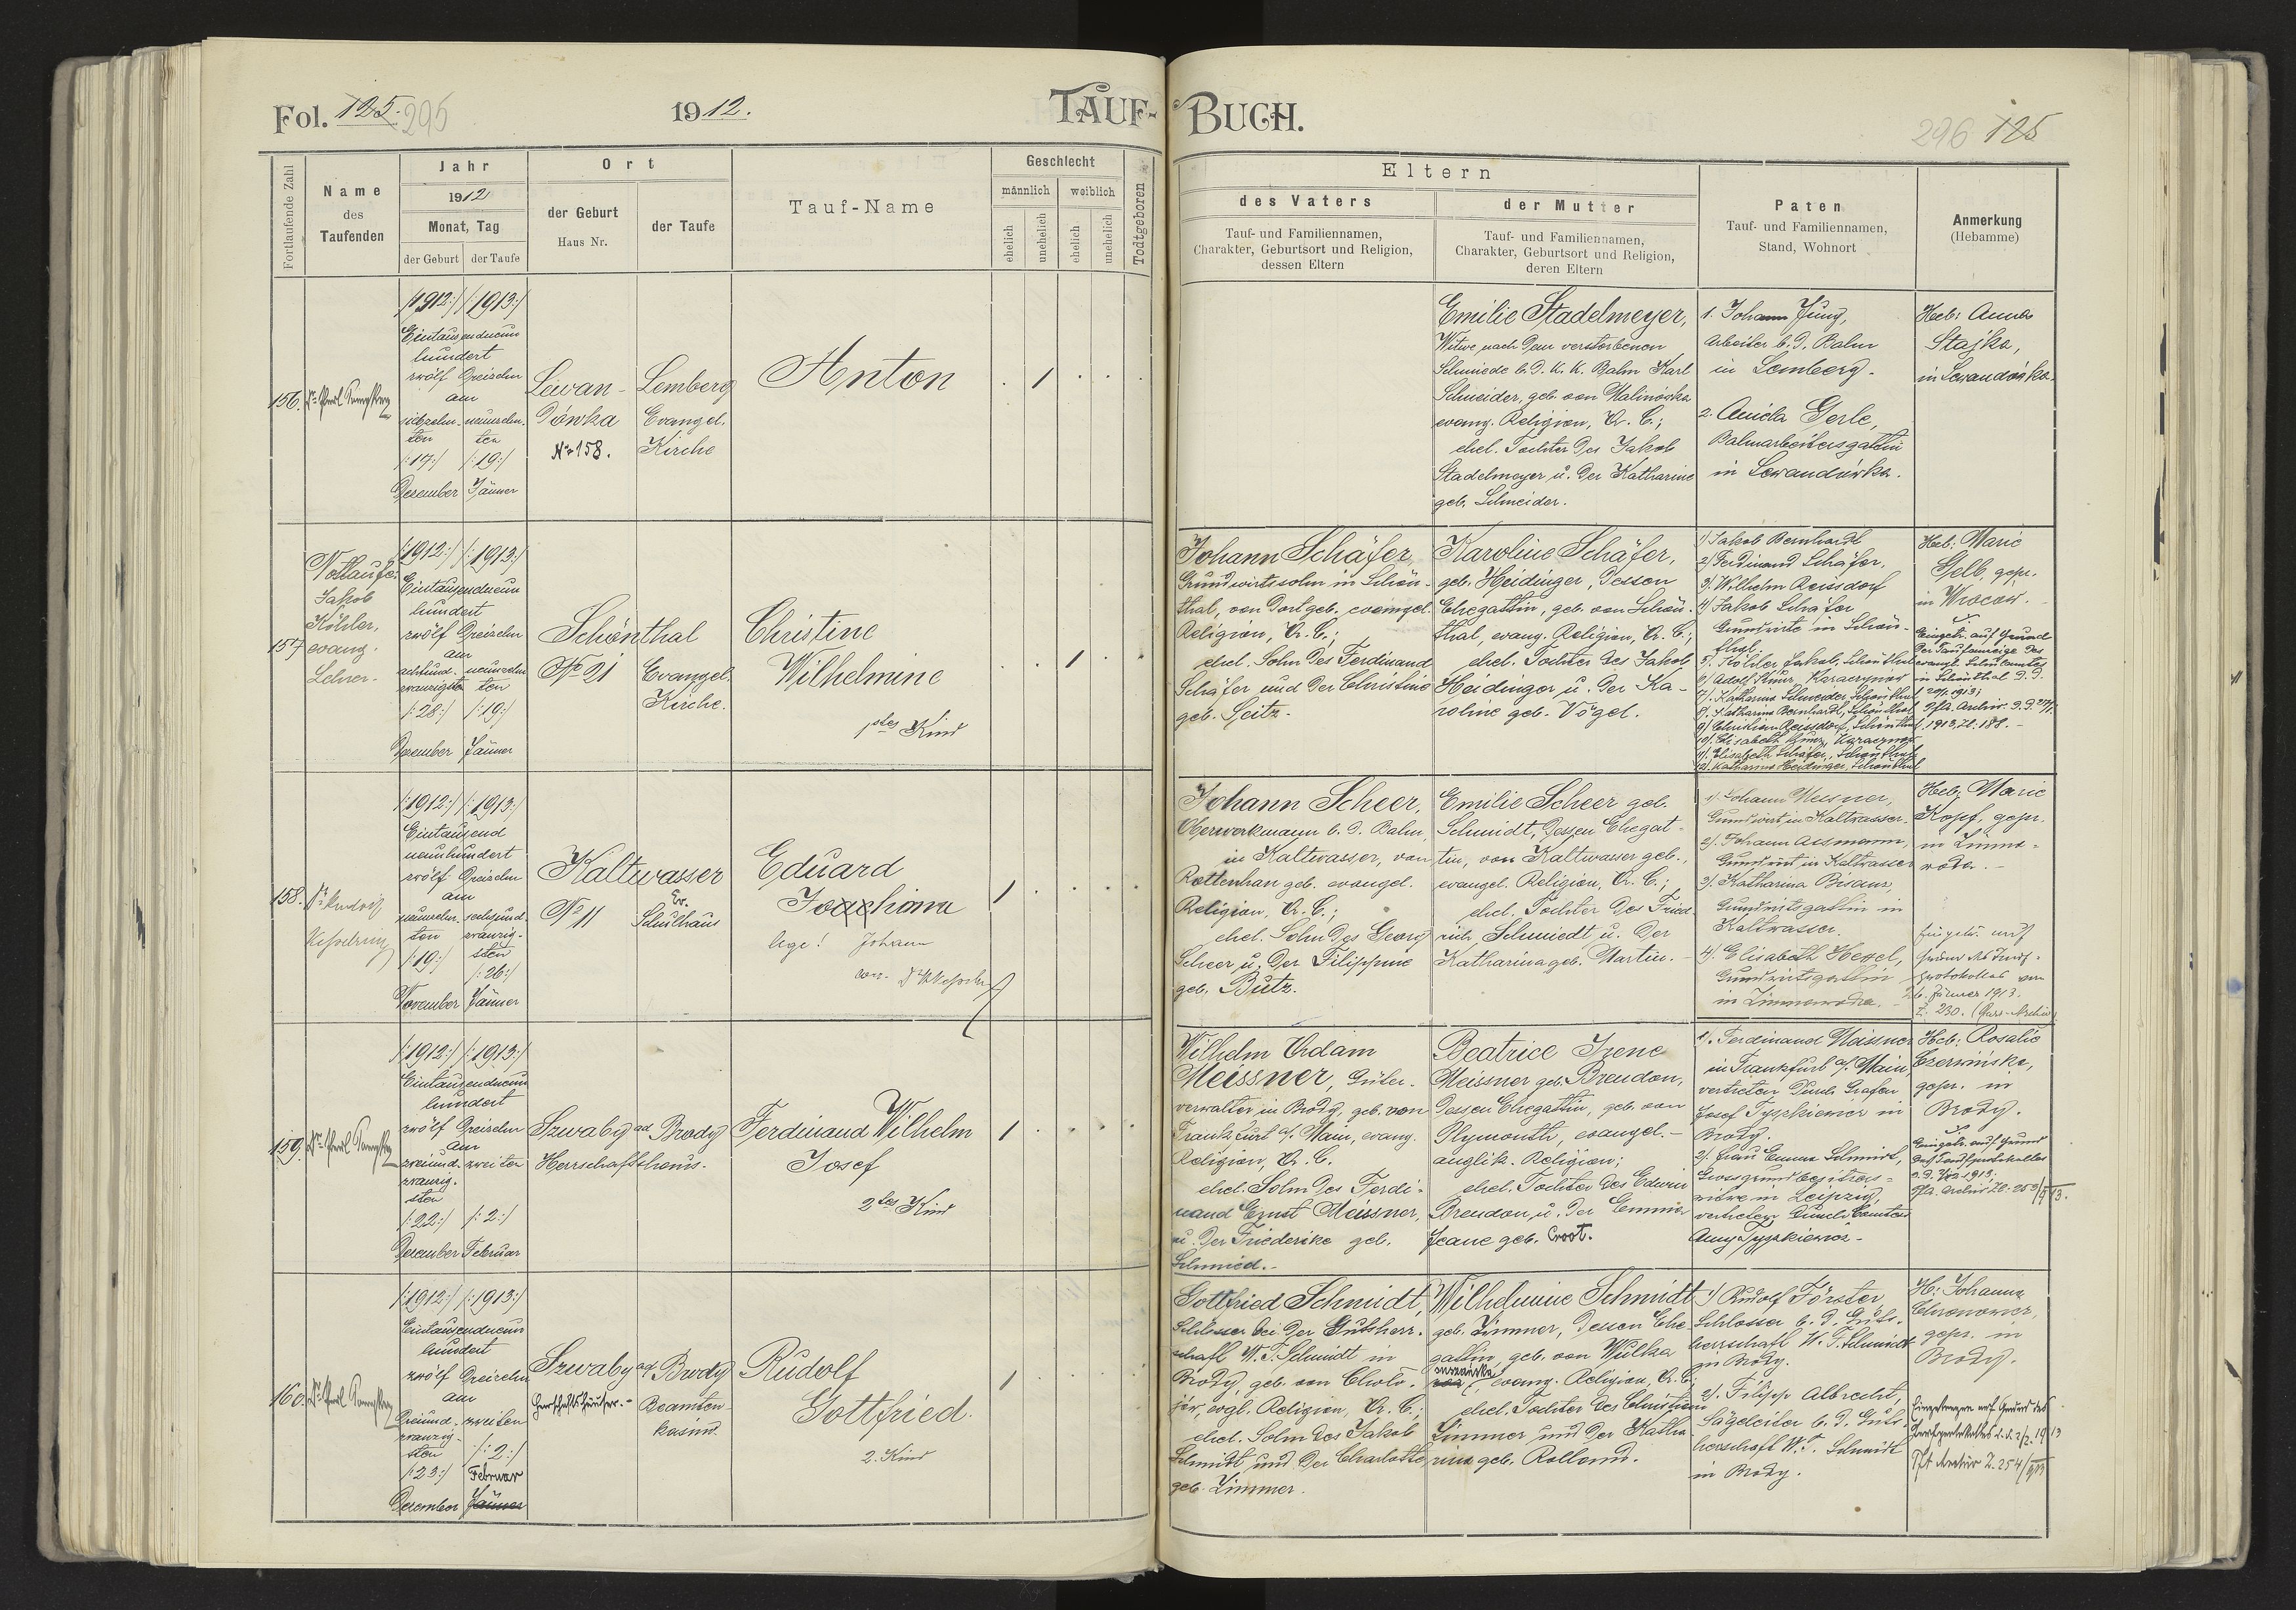 Fol. 125. 295
1912.
TAUF-
BUCH.
296 125
Fortlaufende Zahl
Name
des
Taufenden
Jahr
1912
Monat, Tag
der Geburt
der Taufe
Ort
der Geburt
Haus Nr.
der Taufe
Tauf-Name
Geschlecht
männlich
weiblich
ehelich
unehelich
ehelich
unehelich
Todtgeboren
Eltern
des Vaters
Tauf- und Familiennamen,
Charakter, Geburtsort und Religion,
dessen Eltern
der Mutter
Tauf- und Familiennamen,
Charakter, Geburtsort und Religion,
deren Eltern
Paten
Tauf- und Familiennamen,
Stand, Wohnort
Anmerkung
(Hebamme)
156.
/:1912:/ /:1913:/
Eintausendneun
hundert
zwölf dreizehn
am
siebzehn- neunzehn-
ten ten
/:17:/ /:19:/
Dezember Jänner
Lewan-
dówka
Nr 158.
Lemberg
Evangel.
Kirche
Anton
Emilie Stadelmeyer,
Witwe nach dem verstorbenen
Schmiede b. d. K. K. Bahn Karl
Schneider, geb. von Malinówka
evang. Religion, A. C.;
ehel. Tochter des Jakob
Stadelmeyer u. der Katharine
geb. Schneider.
1. Johann Jung,
Arbeiter b. d. Bahn
in Lemberg.
2. Gerle,
Bahnarbeitersgattin
in Lewandówka.
Heb: Anna
Stajka,
in Lewandówka.
157
Nottaufe:
Jakob
Köhler,
evang.
Lehrer.
/:1912:/ /:1913:/
Eintausendneun
hundert
zwölf dreizehn
am
achtund- neunzehn
zwanzigsten ten
/:28:/ /:19:/
Dezember Jänner
Schönthal
No 21
Evangel.
Kirche.
Christine
Wilhelmine
1stes Kind
Johann Schäfer,
Grundwirtssohn in Schön-
thal, von dort geb. evangel.
Religion, A. C.;
ehel. Sohn des Ferdinand
Schäfer und der Christine
geb. Seitz.
Karoline Schäfer,
geb. Heidinger, dessen
Ehegattin, geb. von Schön-
thal, evang. Religion, A. C.;
ehel. Tochter des Jakob
Heidinger u. der Ka-
roline geb. Vögel.
1) Jakob Bernhardt
2) Ferdinand Schäfer,
3) Wilhelm Reissdorf
4) Jakob Schäfer
Grundwirte in Schön-
thal.
5) Köhler Jakob, Schönthal
6) Adolf Kunz, Karaczynow
7) Katharina Schneider, Schönthal
8) Katharina Bernhardt, Schönthal
9) Christina Reissdorf, Schönthal
10) Elisabeth Kunz, Karaczynow
11) Elisabeth Schäfer, Schönthal
12) Katharina Heidinger, Schönthal
Heb: Marie
Gelb, gepr.
in Wrocow.
Eingetr. auf Grund
der Taufanzeige des
evangl. Schulamtes
in Schönthal d. d.
1913;
1913, Zl. 188.
158.
Dr Rudolf
Kesselring
/:1912:/ /:1913:/
Eintausend
neunhundert
zwölf dreizehn
am
neunzehn- sechsund-
ten zwanzig-
sten
/:19:/ /:26:/
November Jänner
Kaltwasser
No 11
Ev.
Schulhaus
Eduard
Joachim
lege! Johann
Johann Scheer,
Oberwerkmann b. d. Bahn,
in Kaltwasser, von
Rottenhan geb. evangel.
Religion, A. C.;
ehel. Sohn des Georg
Scheer u. der Filippine
geb. Butz.
Emilie Scheer geb.
Schmidt, dessen Ehegat-
tin, von Kaltwasser geb.,
evangel. Religion, A. C.;
ehel. Tochter des Fried-
rich Schmiedt u. der
Katharina geb. Martin.
1) Johann Messner,
Grundwirt in Kaltwasser.
2) Johann Assmann,
Grundwirt in Kaltwasser
3) Katharina Bisanz,
Grundwirtsgattin in
Kaltwasser.
4) Elisabeth Hegel,
Grundwirtsgattin
in Zimnawoda.
Heb. Marie
Kopf, gepr.
in Zimna-
woda.
Eingetr. auf
Grund des Tauf-
protokolles vom
26. Jänner 1913.
Z. 230.
159.
/:1912:/ /:1913:/
Eintausendneun
hundert
zwölf dreizehn
am
zweiund- zweiten
zwanzig-
sten
/:22:/ /:2:/
Dezember Februar
Szwaby ad Brody
Herrschaftshaus.
Ferdinand Wilhelm
Josef
2tes Kind
Wilhelm Adam
Meissner, Güter-
verwalter in Brody, geb. von
Frankfurt a/ Main, evang.
Religion, A. C.
ehel. Sohn des Ferdi-
nand Ernst Meissner,
u. der Friederike geb.
Schmied.
Beatrice Irene
Meissner geb. Brendon,
dessen Ehegattin, geb. von
Plymouth, evangel.-
anglik. Religion;
ehel. Tochter des Edwin
Brendon u. der Emmie
Jeane geb. Croot.
1). Ferdinand Meissner
in Frankfurt a/ Main,
vertreten durch Grafen
Josef Tyszkiewicz in
Brody.
2). Frau Emma Schmidt,
Grossgrundbesitzers-
witwe in Leipzig,
vertreten durch Comtess
Amy Tyszkiewicz-
Heb: Rosalie
Czerwińska,
gepr. in
Brody.
Eingetr. auf Grund
des Taufprotokolles
d. d. 2/2 1913,
Pfa. Archiv Zl. 253/913.
160.
/:1912:/ /:1913:/
Eintausendneun
hundert
zwölf dreizehn
am
dreiund- zweiten
zwanzig-
sten
/:23:/ /:2:/
Februar
Dezember Jänner
Szwaby ad Brody
Herrschaftshäuser.-
Beamten-
kasino.
Rudolf
Gottfried.
2. Kind
Gottfried Schmidt,
Schlosser bei der Gutsherr-
schaft W. T. Schmidt in
Brody, geb. von Cholo-
jów, evgl. Religion, A. C.;
ehel. Sohn des Jakob
Schmidt und der Charlotte
geb. Zimmer.
Wilhelmine Schmidt
geb. Zimmer, dessen Ehe
gattin, geb. von Wulka
evang. Religion, A. C.
ehel. Tochter des Christian
Zimmer und der Katha-
rina geb. Rolland.
1) Rudolf Förster
Schlosser b. d. Guts-
herrschaft W. T. Schmidt
in Brody.
2). Filipp Albrecht,
Sägeleiter b. d. Guts-
herrschaft W. T. Schmidt
in Brody.
H: Johanna
gepr. in
Brody.
Eingetragen auf Grund des
Taufprotokolles d. d. 2/2. 1913
Pf. Archiv Z. 254/913